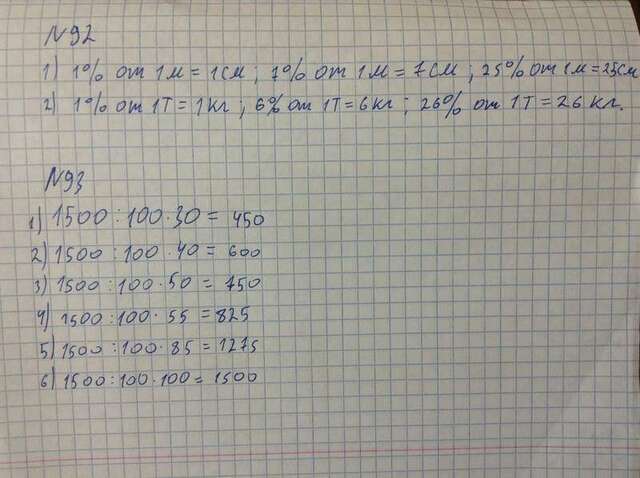 N92
1) 1% от 1м = 1см ; 7% от 1м = 7см ; 25% от 1м = 25см
2) 1% от 1т = 1кг ; 6% от 1т = 6кг ; 26% от 1т = 26кг.
N93
1) 1500 : 100 · 30 = 450
2) 1500 : 100 · 40 = 600
3) 1500 : 100 · 50 = 750
4) 1500 : 100 · 55 = 825
5) 1500 : 100 · 85 = 1275
6) 1500 : 100 · 100 = 1500